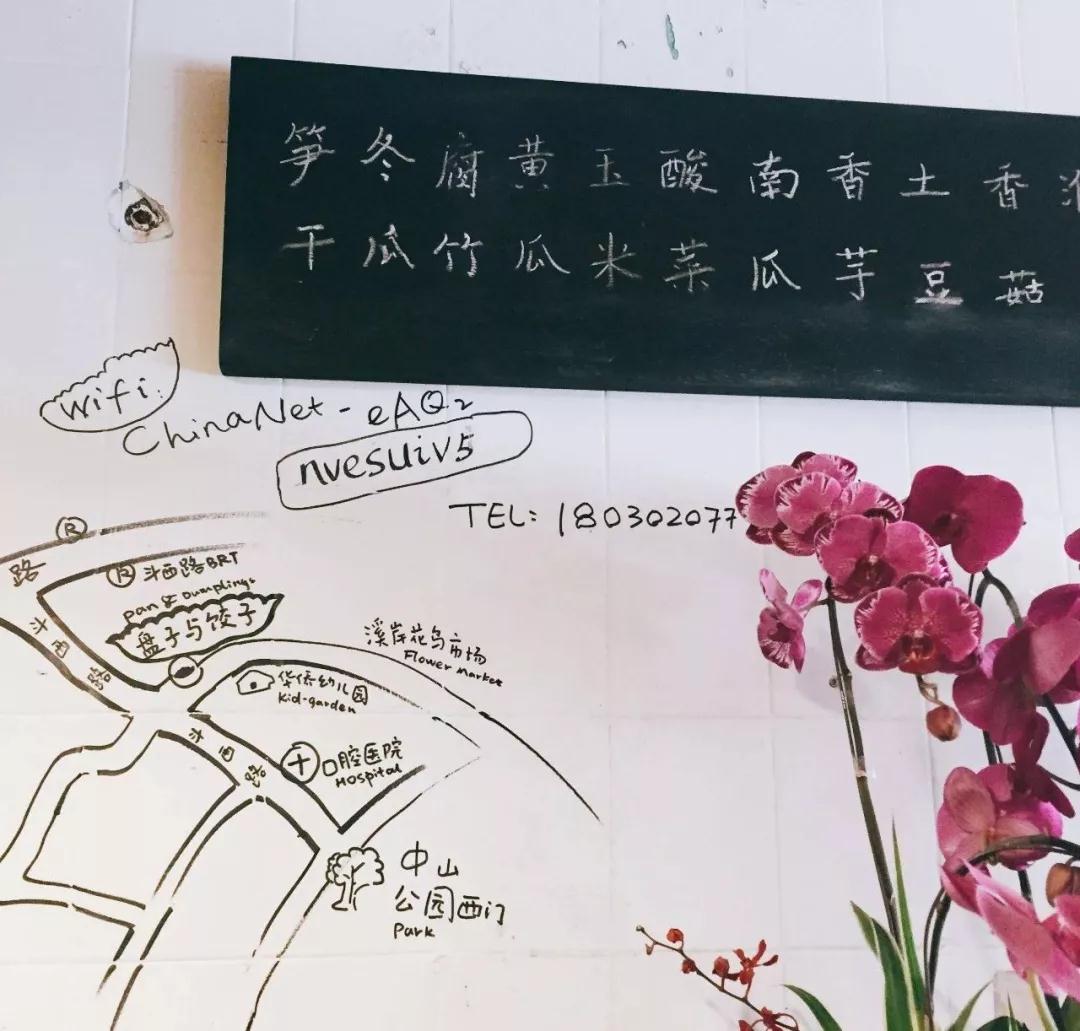 笋干
冬瓜
腐竹
黄瓜
玉米
酸菜
南瓜
香芋
土豆
香菇
wifi:
ChinaNet-eAQ2
nvesuiv5
TEL: 180302077
R
路
R 斗西路BRT
Pan & Dumplings
盘子与饺子
斗西路
溪岸花鸟市场
Flower market
华侨幼儿园
Kid-garden
斗西路
口腔医院
Hospital
中山
公园西门
Park